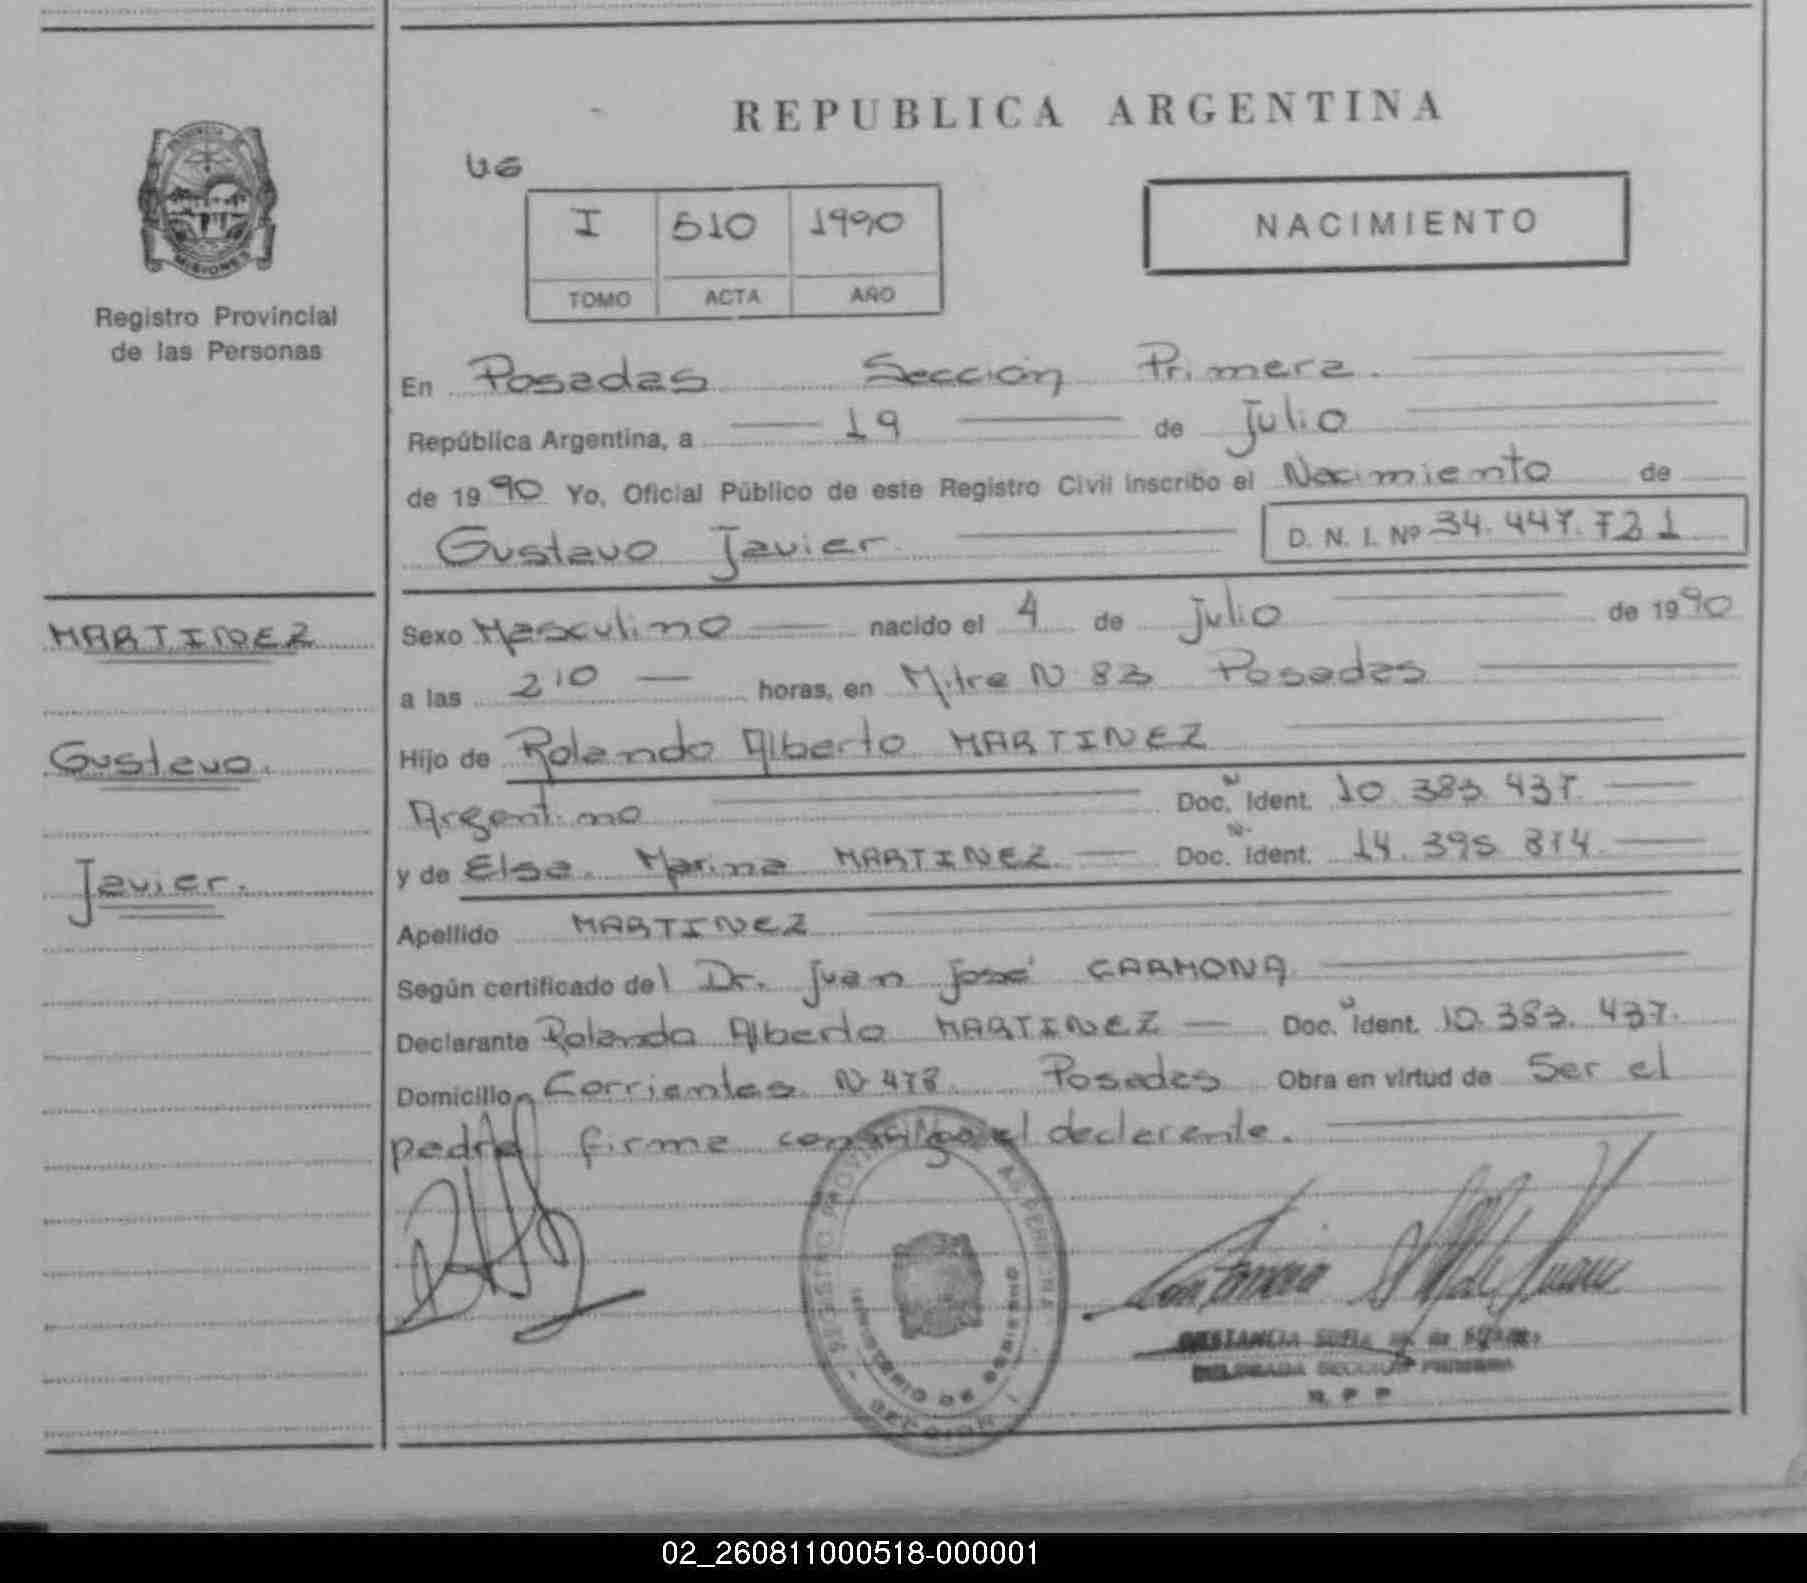 REPUBLICA ARGENTINA
PROVINCIA
MISIONES
Registro Provincial
de las Personas
UG
I 510 1990
TOMO ACTA AÑO
NACIMIENTO
En Posadas Sección Primera.
República Argentina, a 19 de Julio
de 1990 Yo, Oficial Público de este Registro Civil inscribo el Nacimiento de
Gustavo Javier D. N. I. Nº 34.447.721
MARTINEZ
Gustavo
Javier.
Sexo Masculino nacido el 4 de Julio de 1990
a las 2 10 horas, en Mitre N 83 Posadas
Hijo de Rolando Alberto MARTINEZ
Argentino Doc. N Ident. 10.383.437.
y de Elsa Marina MARTINEZ Doc. N Ident. 14.395.814.
Apellido MARTINEZ
Según certificado del Dr. Juan José CARMONA
Declarante Rolando Alberto MARTINEZ Doc. N Ident. 10.383.437.
Domicilio Corrientes N 478 Posadas Obra en virtud de Ser el
padre firma conmigo el declarente.
MINISTERIO DE GOBIERNO
SECCION I
DELEGADA SECCION PRIMERA
R. P. P.
02_260811000518-000001